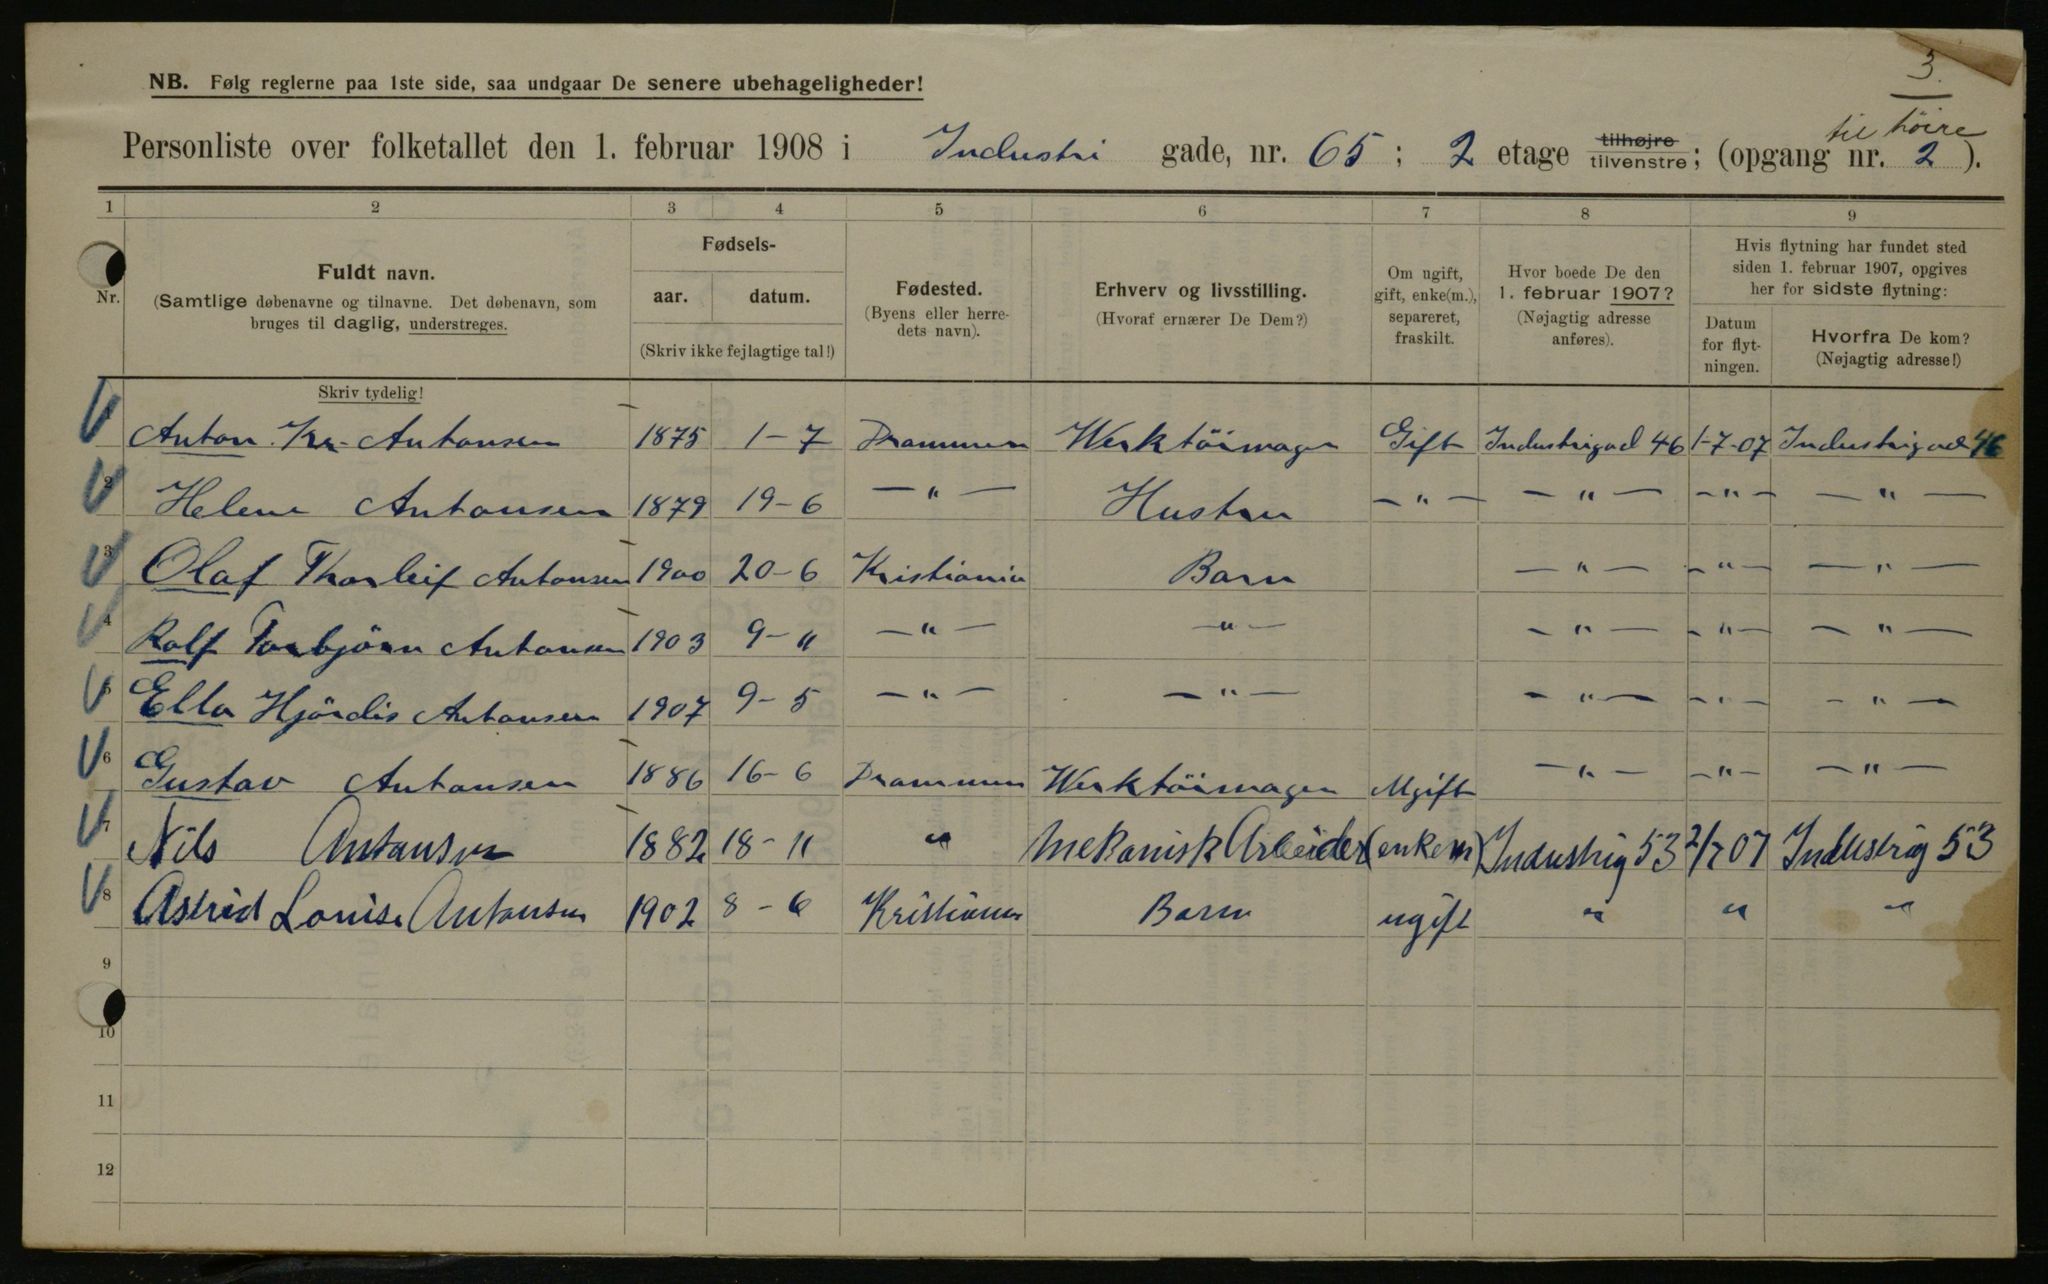 3.
NB. Følg reglerne paa 1ste side, saa undgaar De senere ubehageligheder!
til höire
Personliste over folketallet den 1. februar 1908 i Industri gade, nr. 65; 2 etage tilhøjre tilvenstre; (opgang nr. 2).
1 2 3 4 5 6 7 8 9
Nr.
Fuldt navn.
(Samtlige døbenavne og tilnavne. Det døbenavn, som
bruges til daglig, understreges.
Skriv tydelig!
Fødsels-
aar. datum.
(Skriv ikke fejlagtige tal!)
Fødested.
(Byens eller herre-
dets navn).
Erhverv og livsstilling.
(Hvoraf ernærer De Dem?)
Om ugift,
gift, enke(m.),
separeret,
fraskilt.
Hvor boede De den
1. februar 1907?
(Nøjagtig adresse
anføres).
Hvis flytning har fundet sted
siden 1. februar 1907, opgives
her for sidste flytning:
Datum
for flyt-
ningen.
Hvorfra De kom?
(Nøjagtig adresse!)
Anton Kr. Antonsen 1875 1-7 Drammen Werktöimager Gift Industrigad 46 1-7-07 Industrigad 46
2 Helene Antonsen 1879 19-6 —"— Hustru —"— —"— —"— —"—
3 Olaf Thorleif Antonsen 1900 20-6 Kristiania Barn —"— —"— —"—
4 Rolf Torbjörn Antonsen 1903 9-11 —"— —"— —"— —"— —"—
5 Ella Hjördis Antonsen 1907 9-5 —"— —"— —"— —"— —"—
6 Gustav Antonsen 1886 16-6 Drammen Werktöimager Ugift —"— —"— —"—
7 Nils Antonsen 1882 18-11 " Mekanisk Arbeider (enkem) Industrig 53 2/7 07 Industrig 53
8 Astrid Louise Antonsen 1902 8-6 Kristiania Barn ugift " " "
9
10
11
12